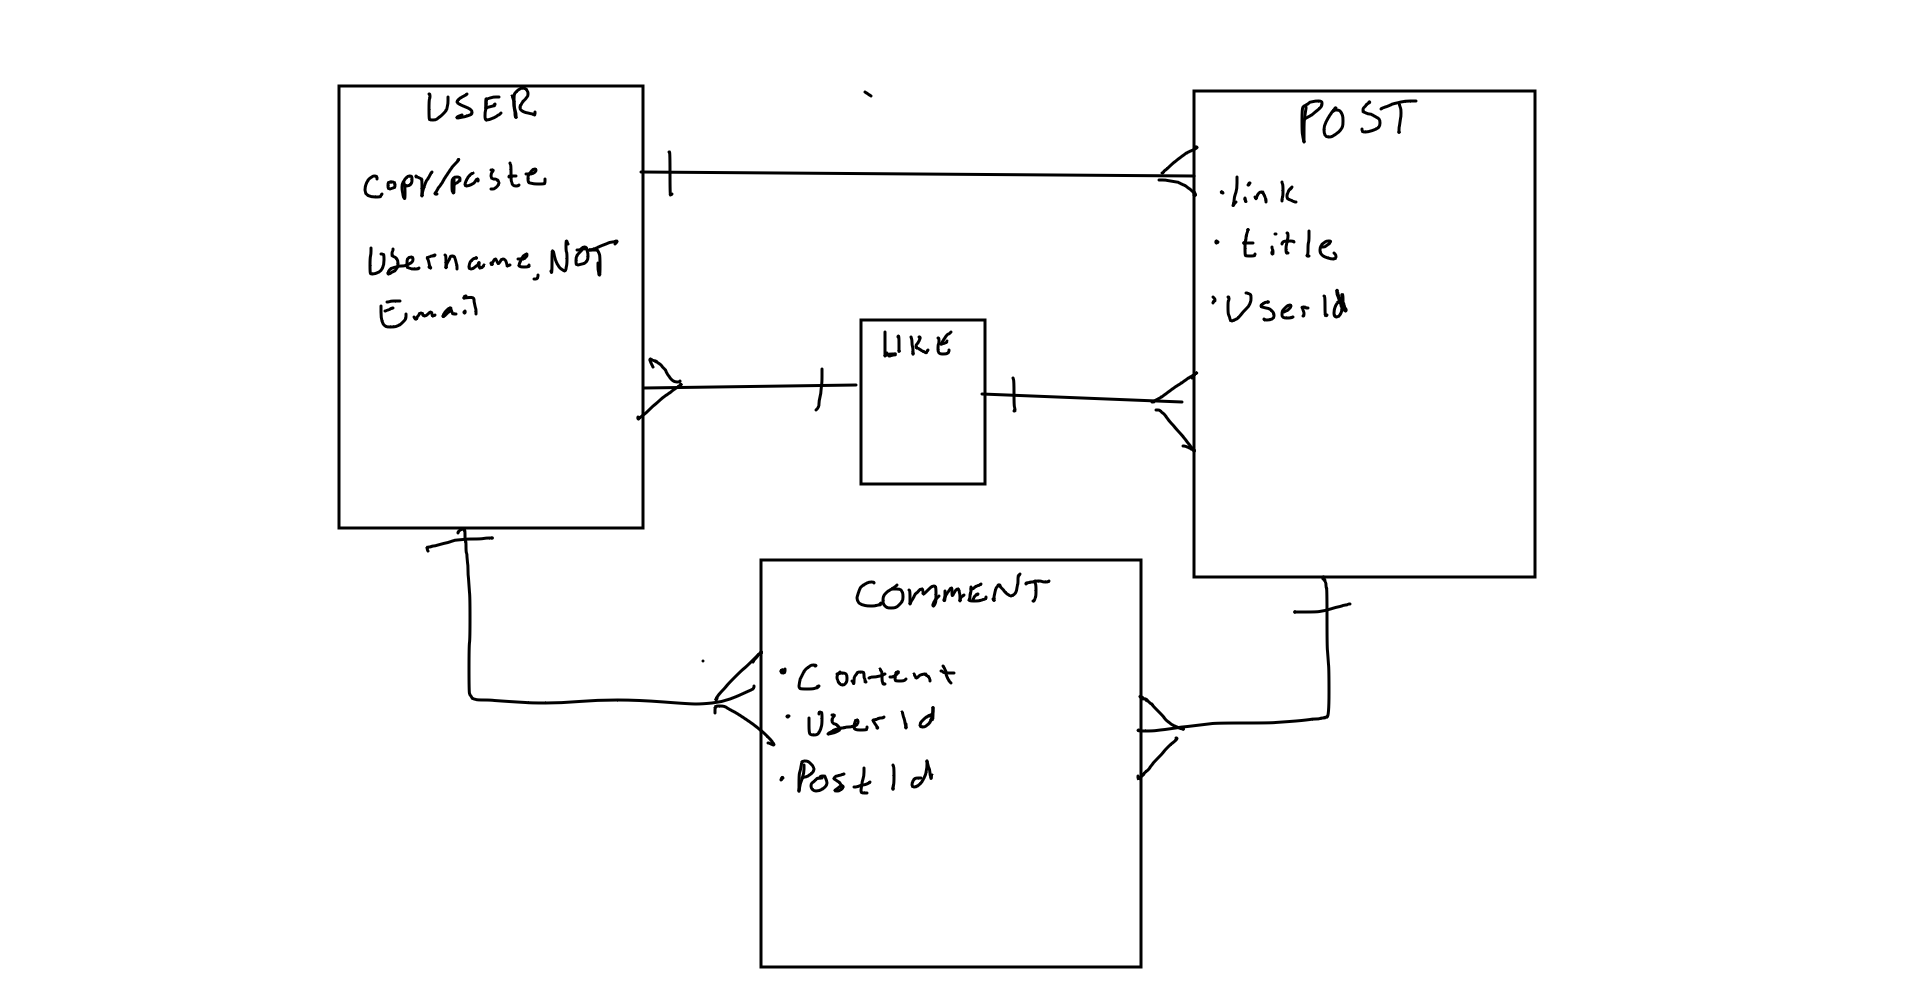 USER
Copy/paste
Username, NOT
Email
POST
·link
·title
·UserId
LIKE
COMMENT
·Content
·UserId
·PostId